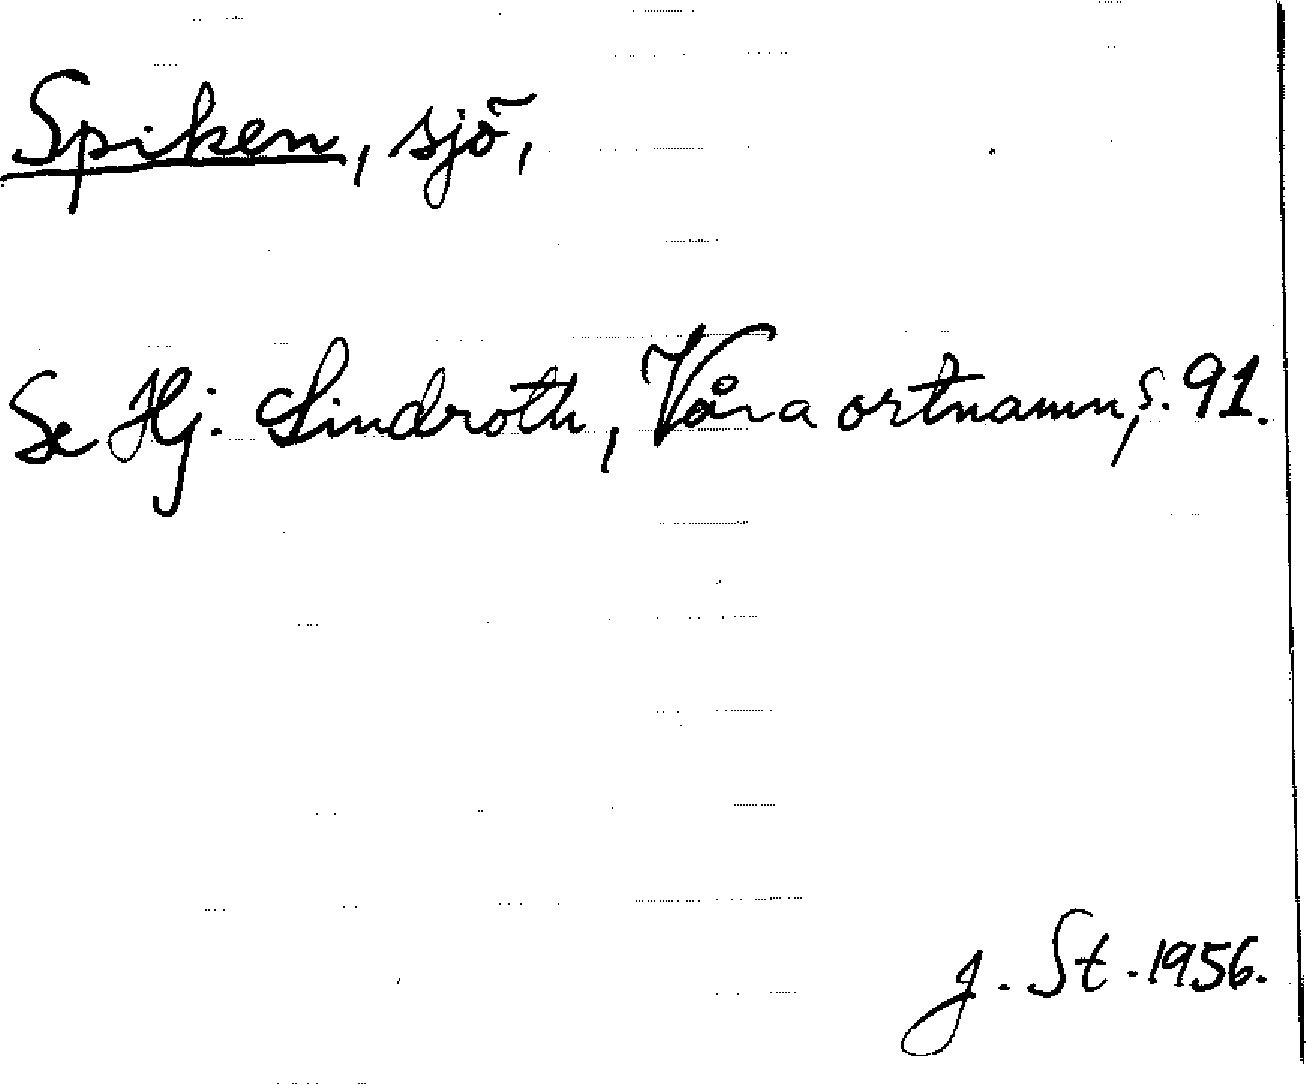 Spiken, sjö,
Se Hj. Lindroth, Våra ortnamn, s. 91.
J. St. 1956.